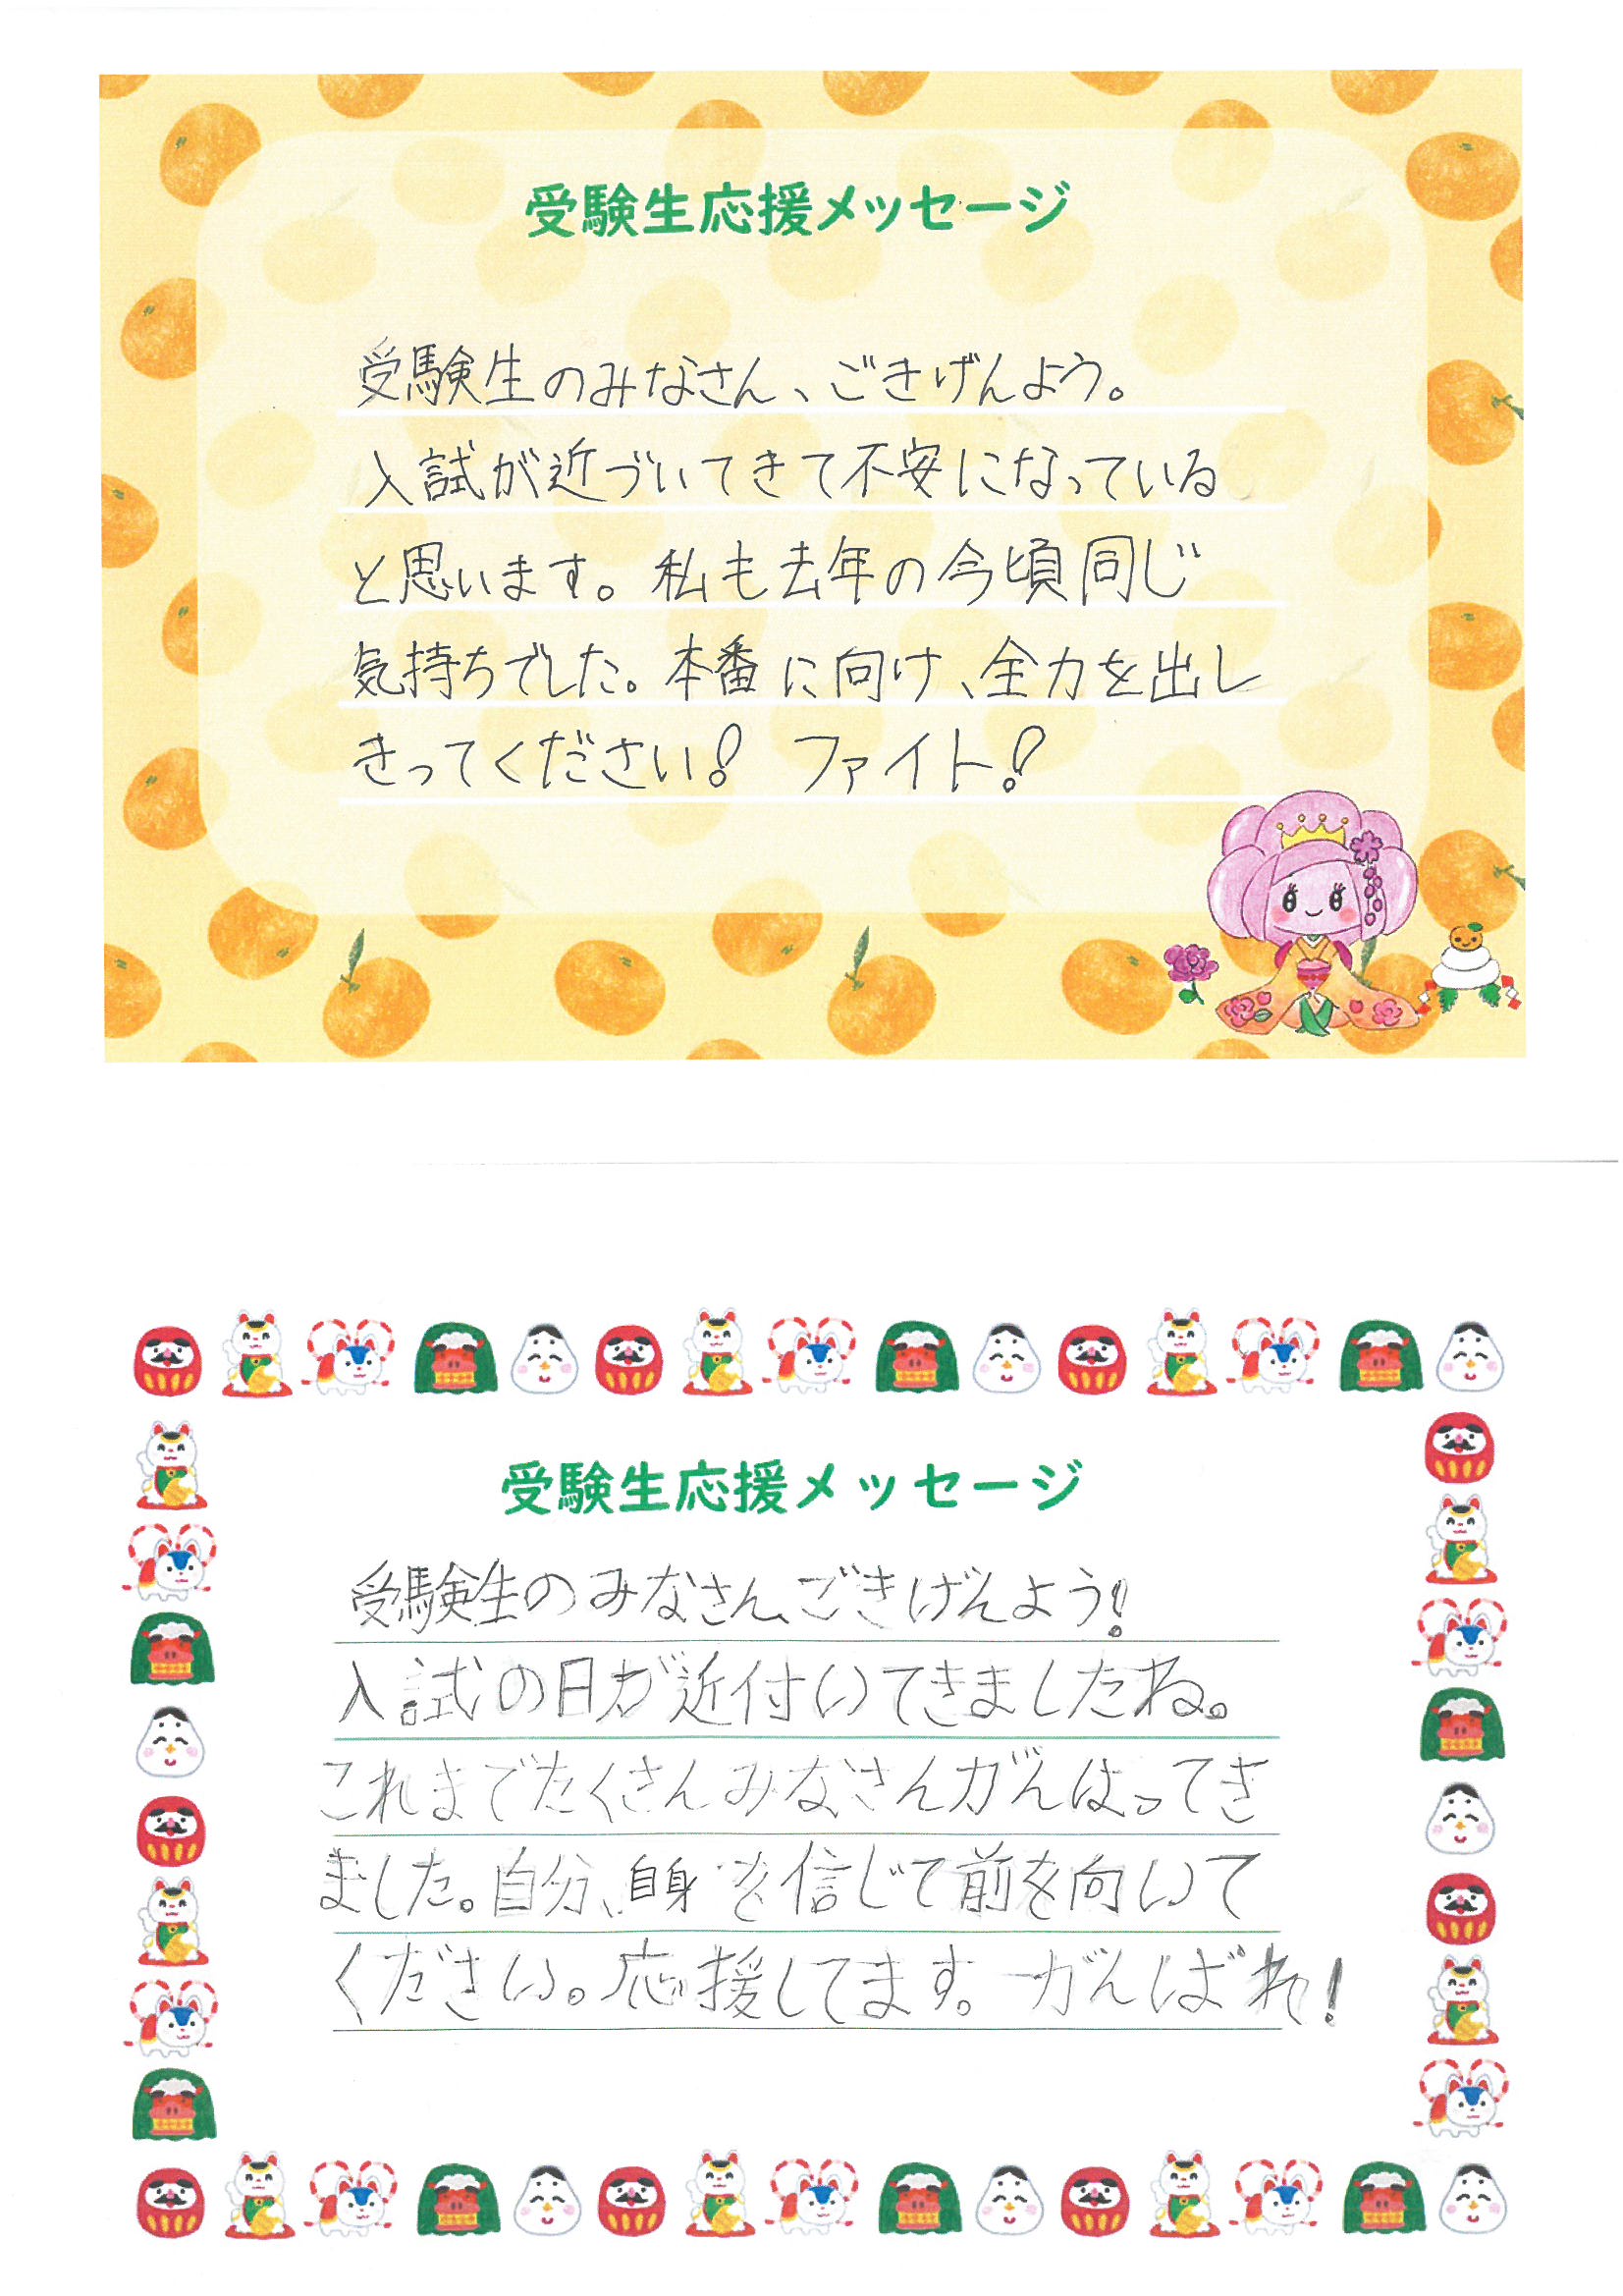 受験生応援メッセージ
受験生のみなさん、ごきげんよう。
入試が近づいてきて不安になっている
と思います。私も去年の今頃同じ
気持ちでした。本番に向け、全力を出し
きってください! ファイト!
受験生応援メッセージ
受験生のみなさん、ごきげんよう!
入試の日が近付いてきましたね。
これまでたくさんみなさんがんはってき
ました。自分、自身を信じて前を向いて
ください。応援してます。がんばれ!